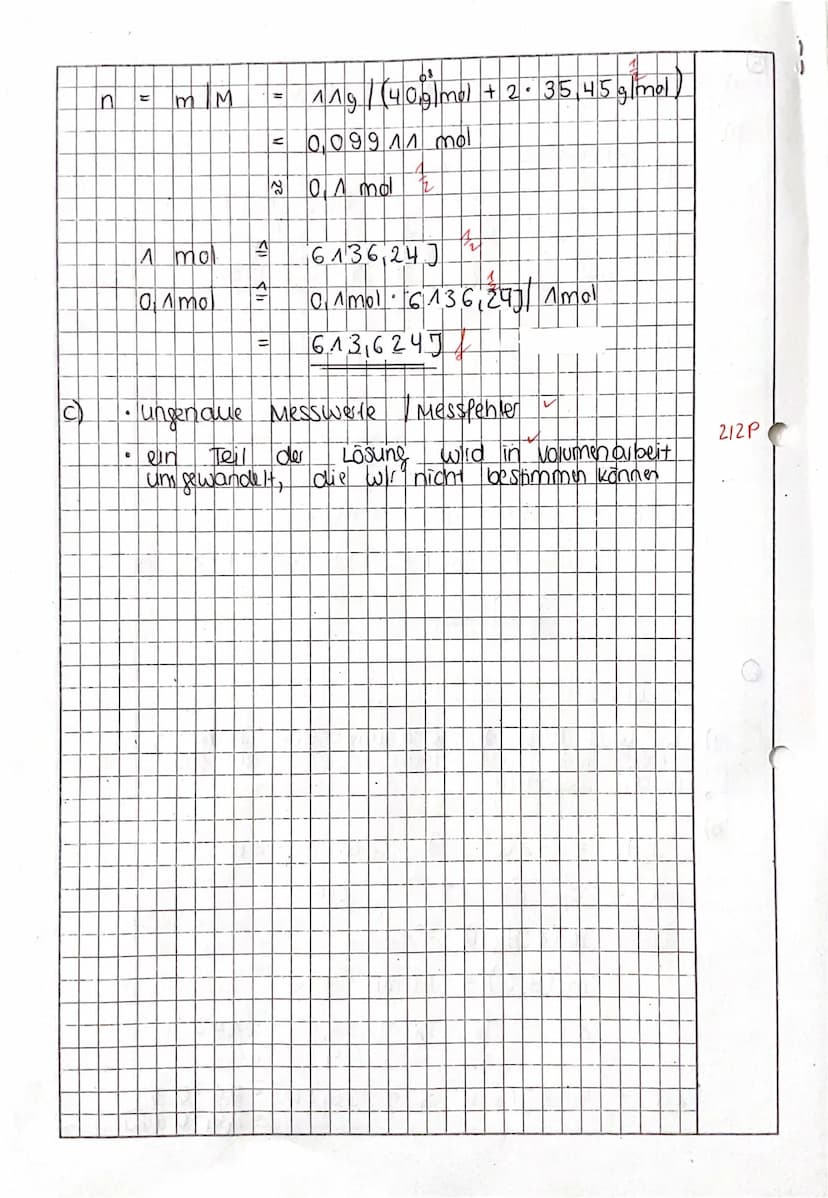 n = m/M = 11g/(40,08g/mol + 2 · 35,45g/mol) 1/2
= 0,09911 mol
≈ 0,1 mol 1/2
1 mol ≙ 6136,24J 1/2
0,1mol ≙ 0,1mol · 6136,24J/1mol 1/2
= 613,624J f
c) · ungenaue Messwerte / Messfehler ✓
· ein Teil der Lösung wird in Volumenarbeit ✓
umgewandelt, die wir nicht bestimmen können
2/2P